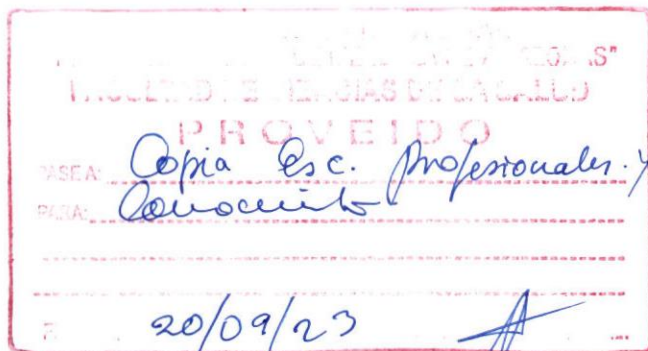 FACULTAD DE CIENCIAS DE LA SALUD
PROVEIDO
PASE A: Copia Esc. Profesionales. y
PARA: Conocimiento
20/09/23